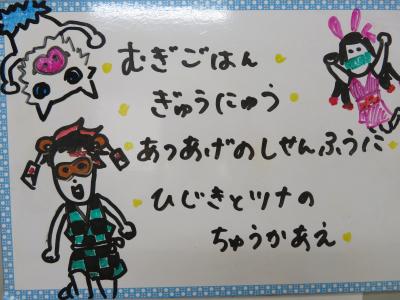 むぎごはん
ぎゅうにゅう
あつあげのしせんふうに
ひじきとツナの
ちゅうかあえ